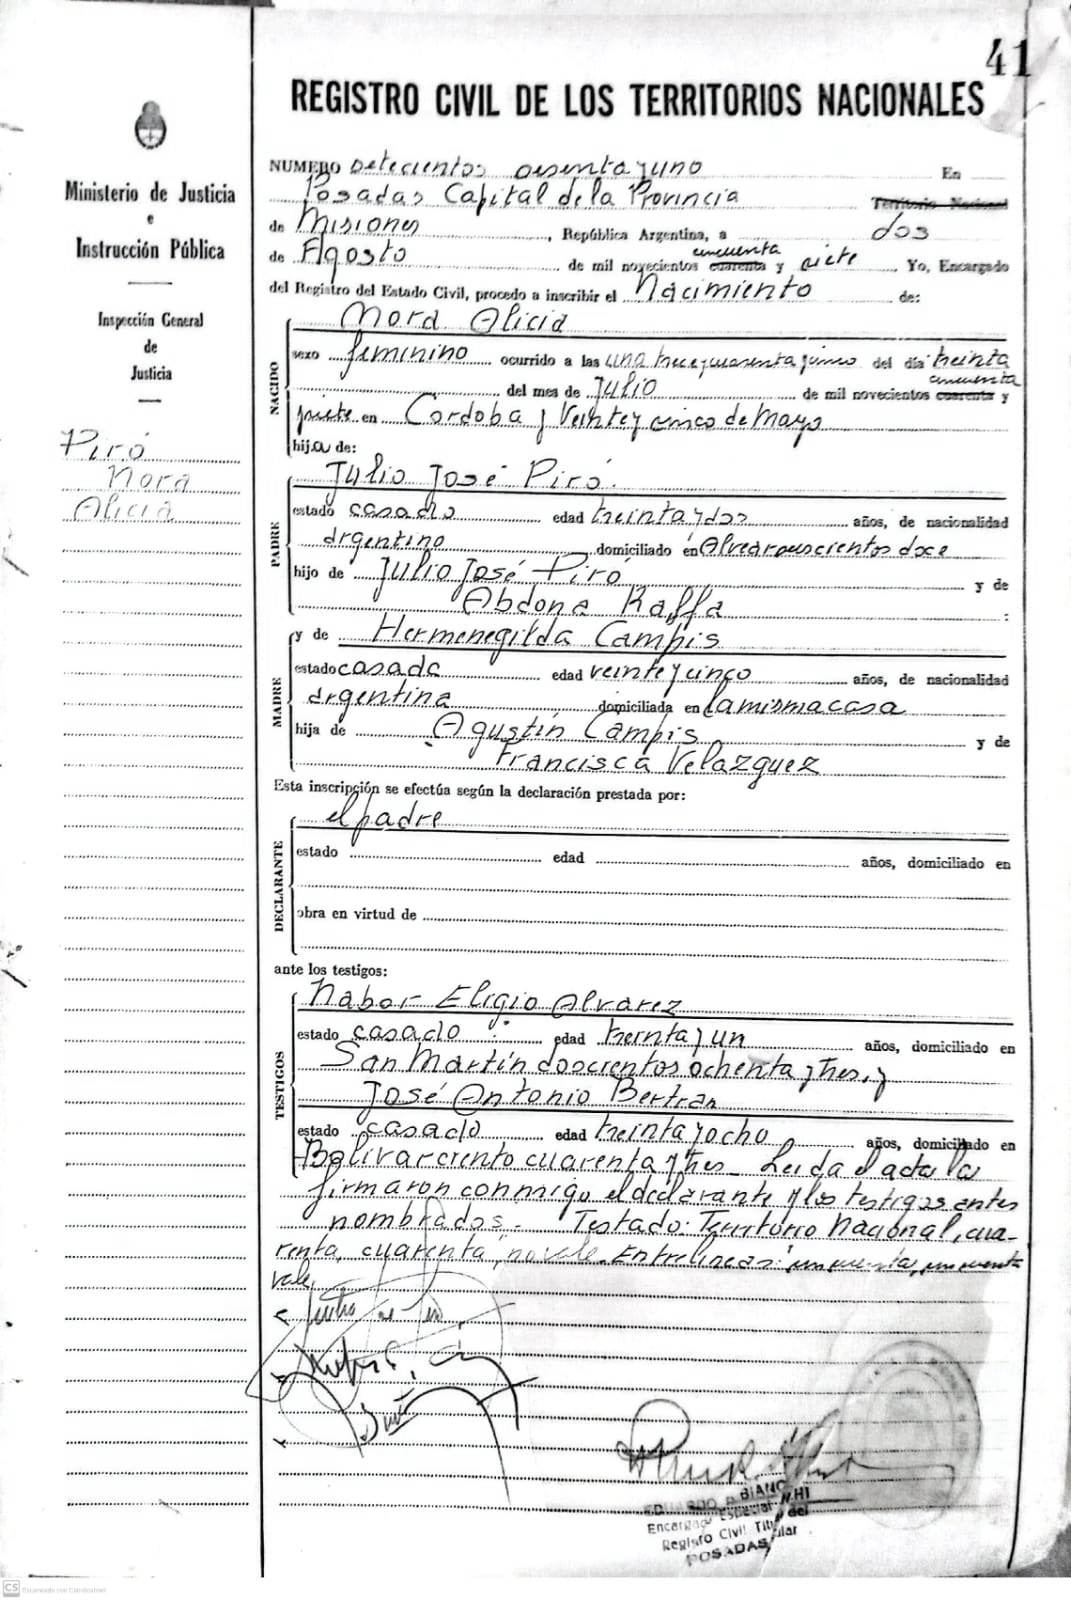 41
REGISTRO CIVIL DE LOS TERRITORIOS NACIONALES
Ministerio de Justicia
e
Instrucción Pública
Inspección General
de
Justicia
Piró
Nora
Alicia
NUMERO Setecientos sesenta y uno En
Posadas Capital de la Provincia Territorio Nacional
de Misiones, República Argentina, a dos
cincuenta
de Agosto de mil novecientos cuarenta y siete Yo, Encargado
del Registro del Estado Civil, procedo a inscribir el Nacimiento de:
NACIDO
Nora Alicia
sexo femenino ocurrido a las una trece y cuarenta y cinco del día treinta
cincuenta
del mes de Julio de mil novecientos cuarenta y
siete en Córdoba y Veinte y cinco de Mayo
hija de:
PADRE
Julio José Piró.
estado casado edad treinta y dos años, de nacionalidad
argentino domiciliado en Alvear doce
hijo de Julio José Piró y de
Abdona Raffa
MADRE
y de Hermenegilda Campis
estado casada edad veinte y cinco años, de nacionalidad
argentina domiciliada en la misma casa
hija de Agustín Campis y de
Francisca Velazquez
Esta inscripción se efectúa según la declaración prestada por:
DECLARANTE
el padre
estado edad años, domiciliado en
obra en virtud de
ante los testigos:
TESTIGOS
Nabor Eligio Alvarez
estado casado edad treinta y un años, domiciliado en
San Martín doscientos ochenta y tres, y
José Antonio Bertran
estado casado edad treinta y ocho años, domiciliado en
Bolivar ciento cuarenta y tres - Leida el acta la
firmaron conmigo el declarante y los testigos antes
nombrados.- Testado: Territorio Nacional, cua-
renta, cuarenta, no vale. Entrelíneas: cincuenta, cincuenta
vale.
EDUARDO BIANCHI
Encargado Especial del
Registro Civil Titular
POSADAS
CS Escaneado con CamScanner